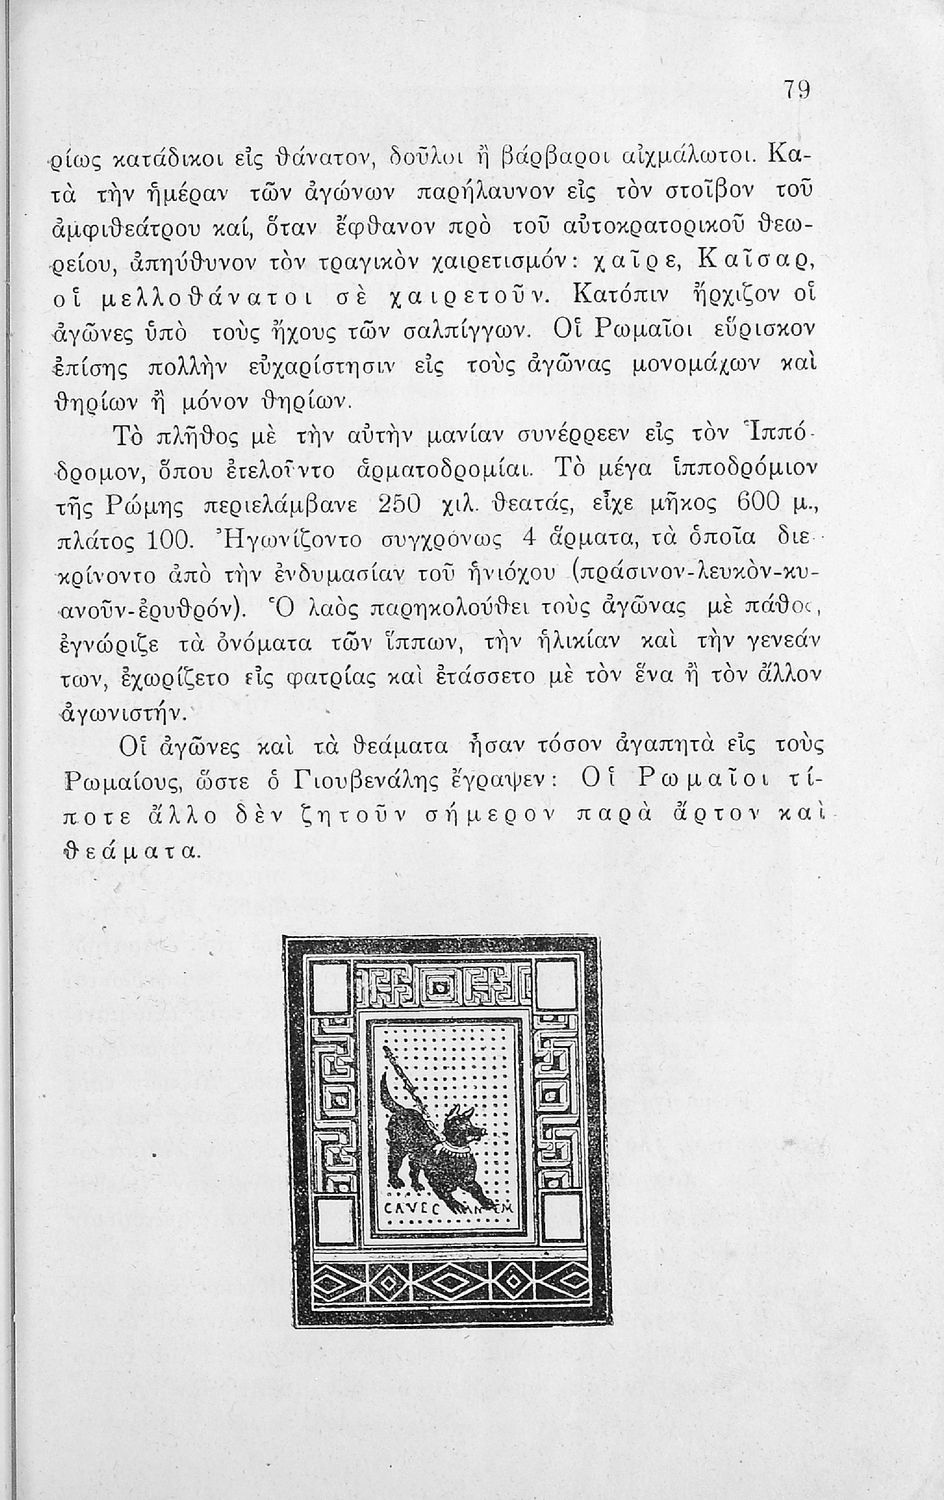 79
ρίως κατάδικοι εἰς θάνατον, δοῦλοι ἢ βάρβαροι αἰχμάλωτοι. Κα-
τὰ τὴν ἡμέραν τῶν ἀγώνων παρήλαυνον εἰς τὸν στοῖβον τοῦ
ἀμφιθεάτρου καί, ὅταν ἔφθανον πρὸ τοῦ αὐτοκρατορικοῦ θεω-
ρείου, ἀπηύθυνον τὸν τραγικὸν χαιρετισμόν: χαῖρε, Καῖσαρ,
οἱ μελλοθάνατοι σὲ χαιρετοῦν. Κατόπιν ἤρχιζον οἱ
ἀγῶνες ὑπὸ τοὺς ἤχους τῶν σαλπίγγων. Οἱ Ρωμαῖοι εὕρισκον
ἐπίσης πολλὴν εὐχαρίστησιν εἰς τοὺς ἀγῶνας μονομάχων καὶ
θηρίων ἢ μόνον θηρίων.
Τὸ πλῆθος μὲ τὴν αὐτὴν μανίαν συνέρρεεν εἰς τὸν Ἱππό-
δρομον, ὅπου ἐτελοῦντο ἁρματοδρομίαι. Τὸ μέγα ἱπποδρόμιον
τῆς Ρώμης περιελάμβανε 250 χιλ. θεατάς, εἶχε μῆκος 600 μ.,
πλάτος 100. Ἠγωνίζοντο συγχρόνως 4 ἅρματα, τὰ ὁποῖα διε-
κρίνοντο ἀπὸ τὴν ἐνδυμασίαν τοῦ ἡνιόχου (πράσινον-λευκὸν-κυ-
ανοῦν-ἐρυθρόν). Ὁ λαὸς παρηκολούθει τοὺς ἀγῶνας μὲ πάθος,
ἐγνώριζε τὰ ὀνόματα τῶν ἵππων, τὴν ἡλικίαν καὶ τὴν γενεάν
των, ἐχωρίζετο εἰς φατρίας καὶ ἐτάσσετο μὲ τὸν ἕνα ἢ τὸν ἄλλον
ἀγωνιστήν.
Οἱ ἀγῶνες καὶ τὰ θεάματα ἦσαν τόσον ἀγαπητὰ εἰς τοὺς
Ρωμαίους, ὥστε ὁ Γιουβενάλης ἔγραψεν: Οἱ Ρωμαῖοι τί-
ποτε ἄλλο δὲν ζητοῦν σήμερον παρὰ ἄρτον καὶ
θεάματα.
CAVE C